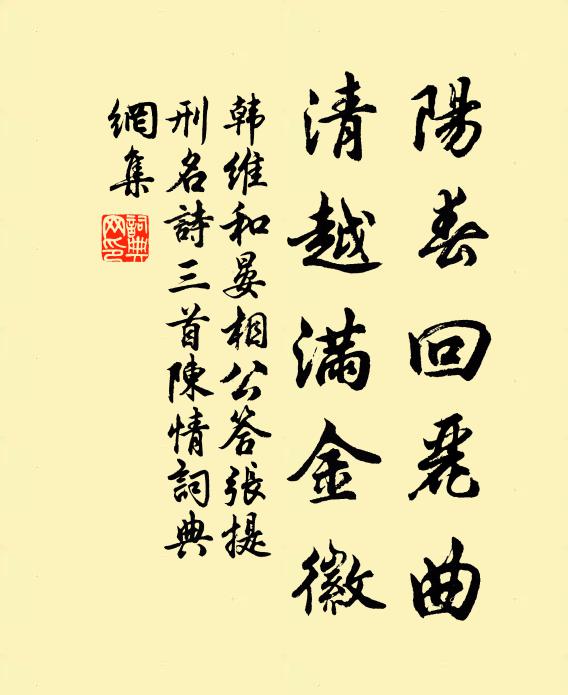 陽春回麗曲
清越滿金徽
韩維和晏相公答張提
刑名詩三首陳情詞典
網集
詞典
网印